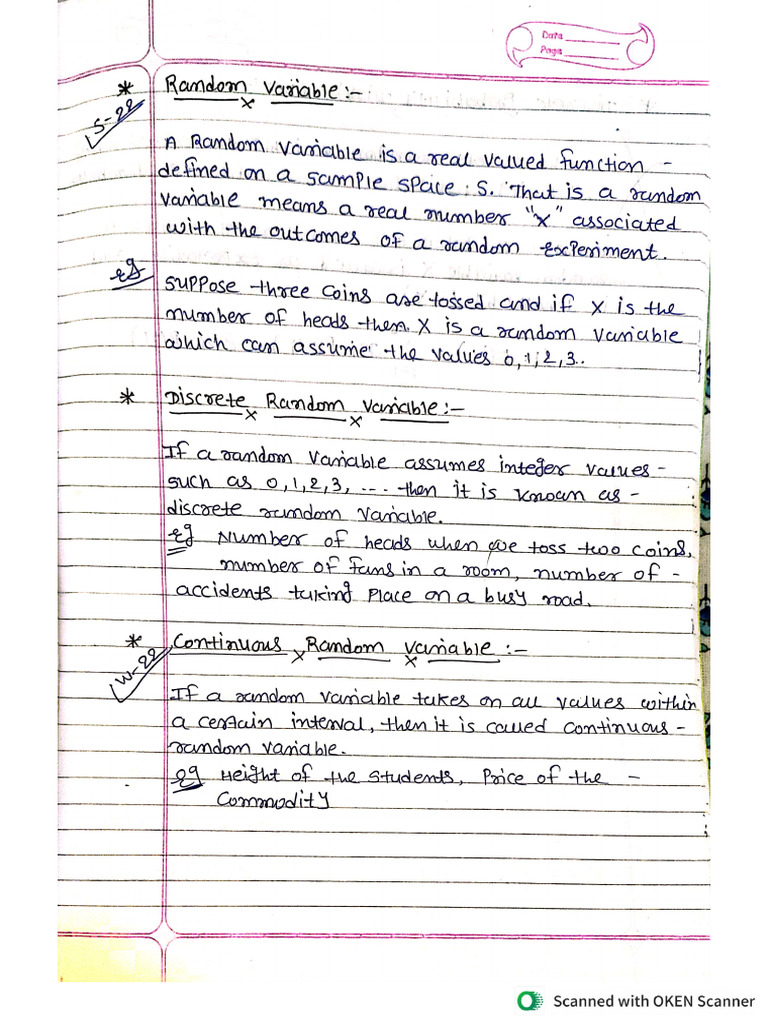 Date
Page
* Random Variable :-
S-22
A Random variable is a real valued function -
defined on a sample space S. That is a random
variable means a real number "x" associated
with the outcomes of a random experiment.
eg
Suppose three coins are tossed and if x is the
number of heads then x is a random variable
which can assume the values 0,1,2,3.
* Discrete Random Variable :-
If a random variable assumes integer values -
such as 0,1,2,3, .... then it is known as -
discrete random variable.
eg Number of heads when we toss two coins,
number of fans in a room, number of -
accidents taking place on a busy road.
* Continuous Random Variable :-
W-22
If a random variable takes on all values within
a certain interval, then it is called continuous -
random variable.
eg Height of the students, Price of the -
Commodity
Scanned with OKEN Scanner